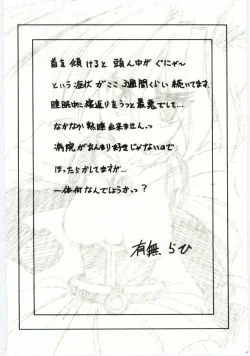 首を傾けると 頭ん中がぐにゃ〜
という症状がここ3週間くらい続いてます
睡眠中に寝返りをうつと最悪でして…
なかなか熟睡出来ませんっ
病院があんまり好きじゃないので
ほったらかしてますが…
一体何なんでしょうかっ?
有無らひ